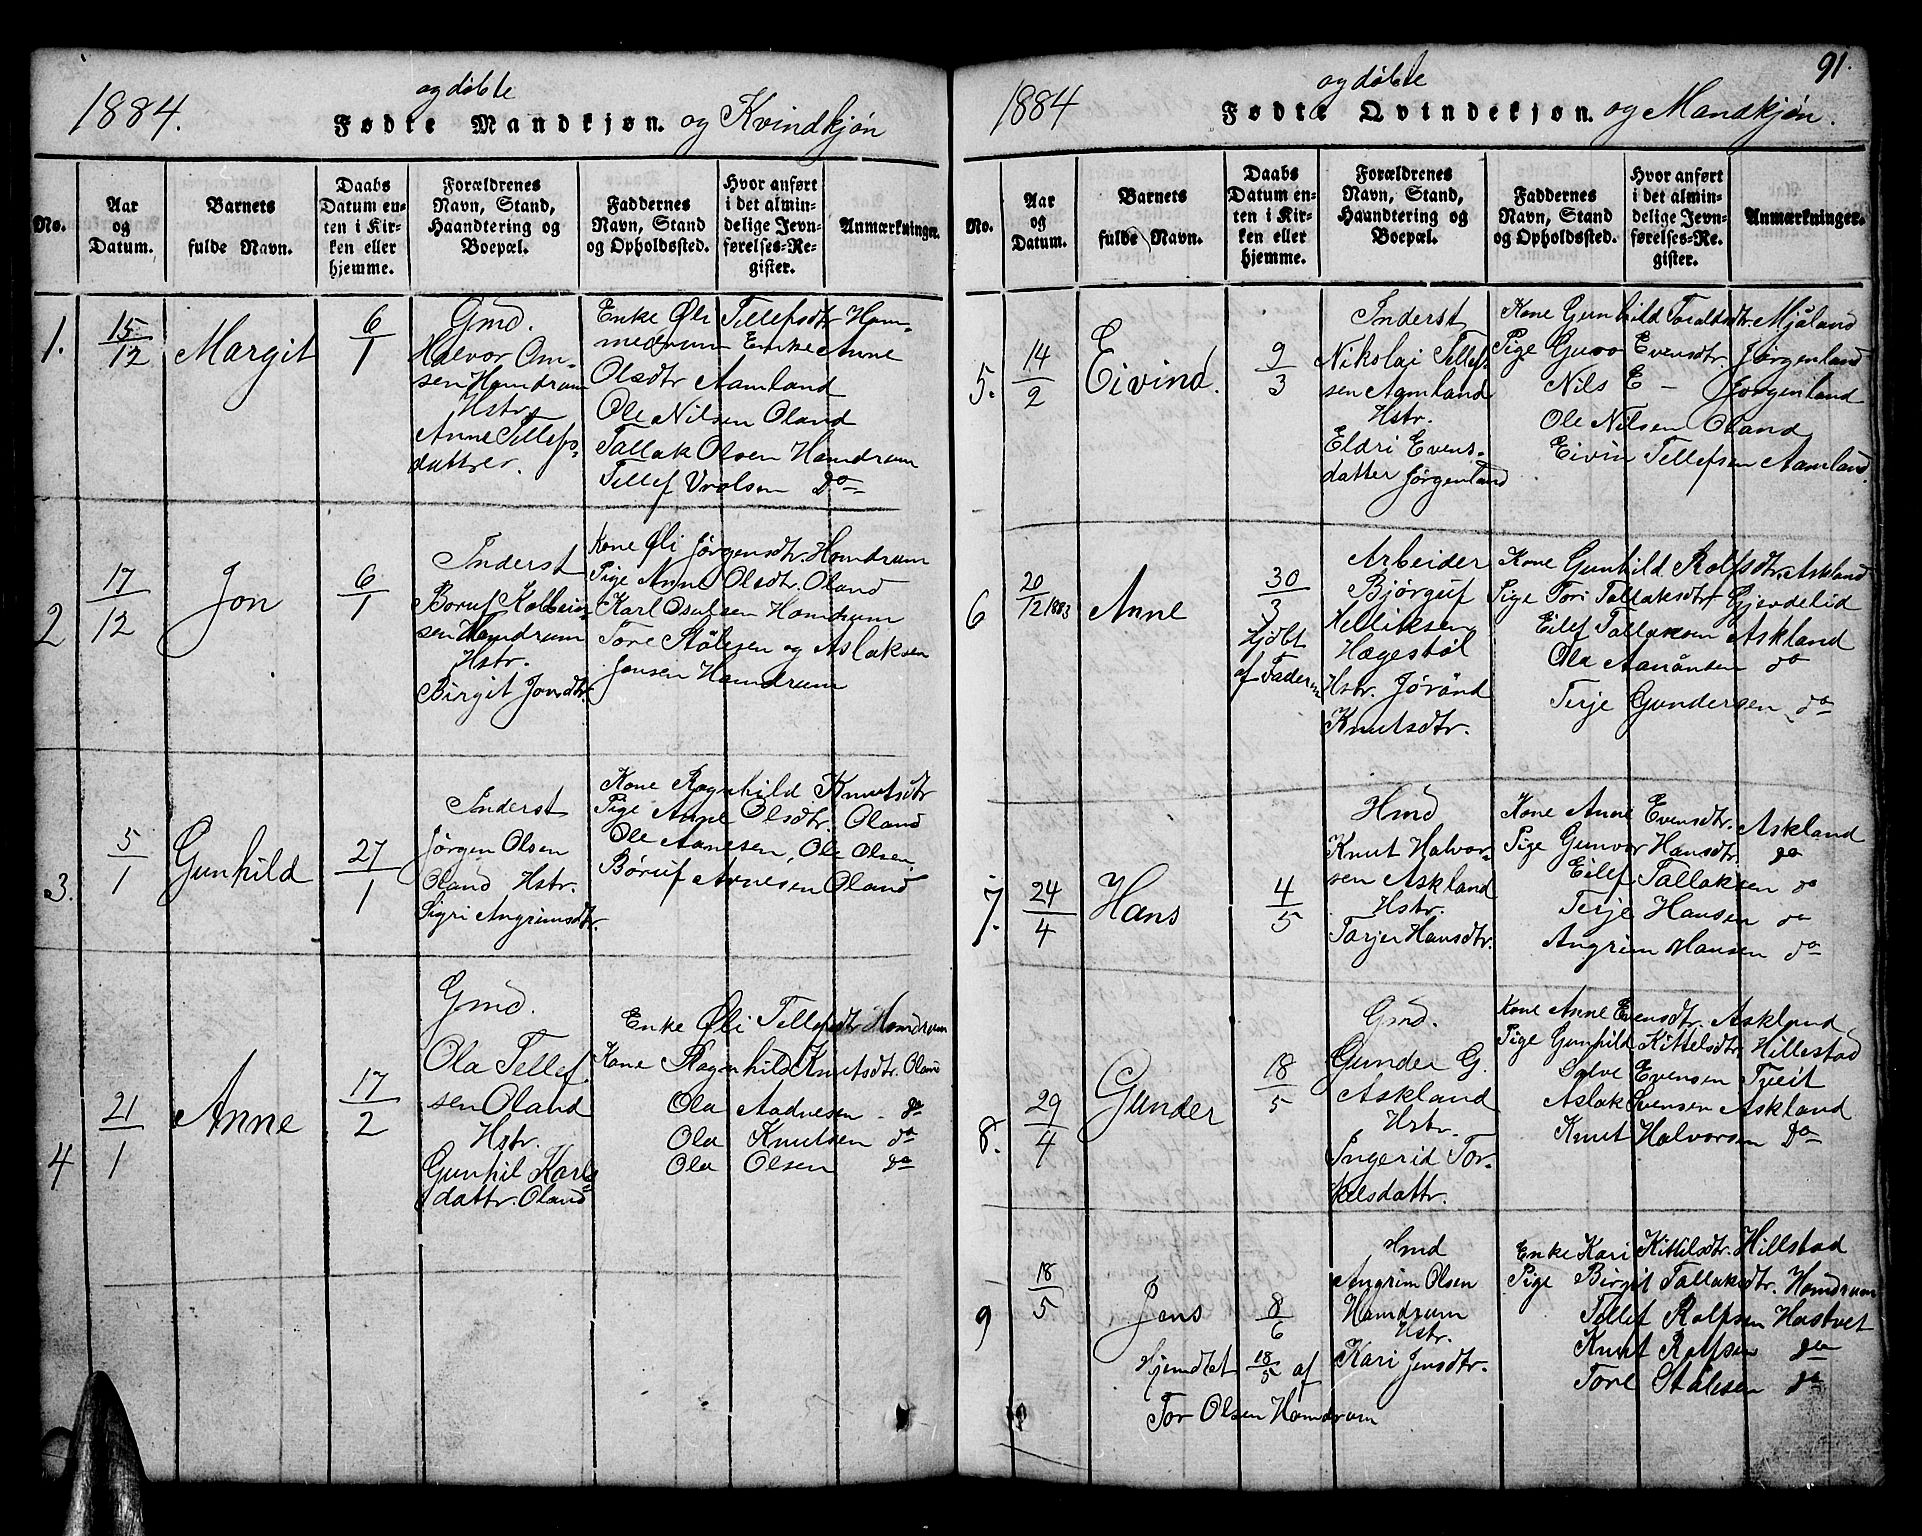 1884.
og døbte
Fødte Mandkjøn. og Kvindkjøn
No.
Aar og Datum.
Barnets fulde Navn.
Daabs Datum enten i Kirken eller hjemme.
Forældrenes Navn, Stand, Haandtering og Boepæl.
Faddernes Navn, Stand og Opholdssted.
Hvor anført i det almindelige Jevnførelses-Register.
Anmærkninger.
1.
15/12
Margit
6/1
Gmd.
Halvor Om-
sen Homdrum
Hstr.
Anne Tellefs-
datter.
Enke Øli Tellefsdtr Hom-
medrum Enke Anne
Olsdtr Aamland
Ole Nilsen Oland
Tallak Olsen Homdrum
Tellef Vrolsen Do
2
17/12
Jon
6/1
Inderst
Boruf Kolbein-
sen Homdrum
Hstr.
Birgit Jondtr.
Kone Øli Jørgensdtr. Homdrum
Pige Anne Olsdtr. Oland
Karl Osulsen Homdrum
Tore Stålesen og Aslaksen
Jonsen Homdrum
3.
5/1
Gunhild
27/1
Inderst
Jørgen Olsen
Oland Hstr.
Sigri Angrimsdtr.
Kone Ragnhild Knutsdtr
Pige Anne Olsdtr. Oland
Ole Aanesen, Ole Olsen,
Børuf Arnesen Oland
4
21/1
Anne
17/2
Gmd.
Ola Tellef
sen Oland
Hstr.
Gunhil Karls-
dattr. Oland
Enke Øli Tellefsdtr Homdrum
Kone Ragnhild Knutsdtr. Oland
Ola Aadnesen do
Ola Knutsen do
Ola Olsen do
91.
1884
og døbte
Fødte Qvindekjøn. og Mandkjøn.
No.
Aar og Datum.
Barnets fulde Navn.
Daabs Datum enten i Kirken eller hjemme.
Forældrenes Navn, Stand, Haandtering og Boepæl.
Faddernes Navn, Stand og Opholdssted.
Hvor anført i det almindelige Jevnførelses-Register.
Anmærkninger.
5.
14/2
Eivind.
9/3
Inderst
Nikolai Tellef-
sen Aamland
Hstr.
Eldri Evens-
datter Jørgenland
Kone Gunhild Toraldsdtr. Mjåland
Pige Guro Evensdtr. Jørgenland
Nils E – Jørgenland
Ole Nilsen Oland
Eivin Tellefsen Aamland.
6
20/12 1883
Anne
30/3
Hjdbt
af Faderen
Arbeider
Bjørguf
Helliksen
Hægestøl
Hstr. Jørånd
Knutsdtr.
Kone Gunhild Rolfsdtr. Askland
Pige Tori Tallaksdtr Gjerdelid
Eilef Tallaksen Askland
Ola Aanånsen do
Terje Gundersen do
7.
24/4
Hans
4/5
Hmd
Knut Halvor-
sen Askland
Hstr.
Torjer Hansdtr.
Kone Anne Evensdtr. Askland
Pige Gunvor Hansdtr. do
Eilef Tallaksen do
Terje Hansen do
Angrim Hansen do
8.
29/4
Gunder
18/5
Gmd.
Gunder G.
Askland
Hstr.
Ingerid Tor-
kelsdattr.
Kone Anne Evensdtr. Askland
Pige Gunhild Kittelsdtr. Hillestad
Salve Evensen Tveit
Aslak Svensen Askland
Knut Halvorsen Do
9
18/5
Jens
8/6
Hjemdbt 18/5 af
Tor Olsen Homdrum
Hmd
Angrim Olsen
Homdrum
Hstr.
Kari Jensdtr.
Enke Kari Kittilsdtr. Hillstad
Pige Birgit Tallaksdtr. Homdrum
Tellef Rolfsen Hastvet
Knut Rolfsen do
Tore Stålesen do